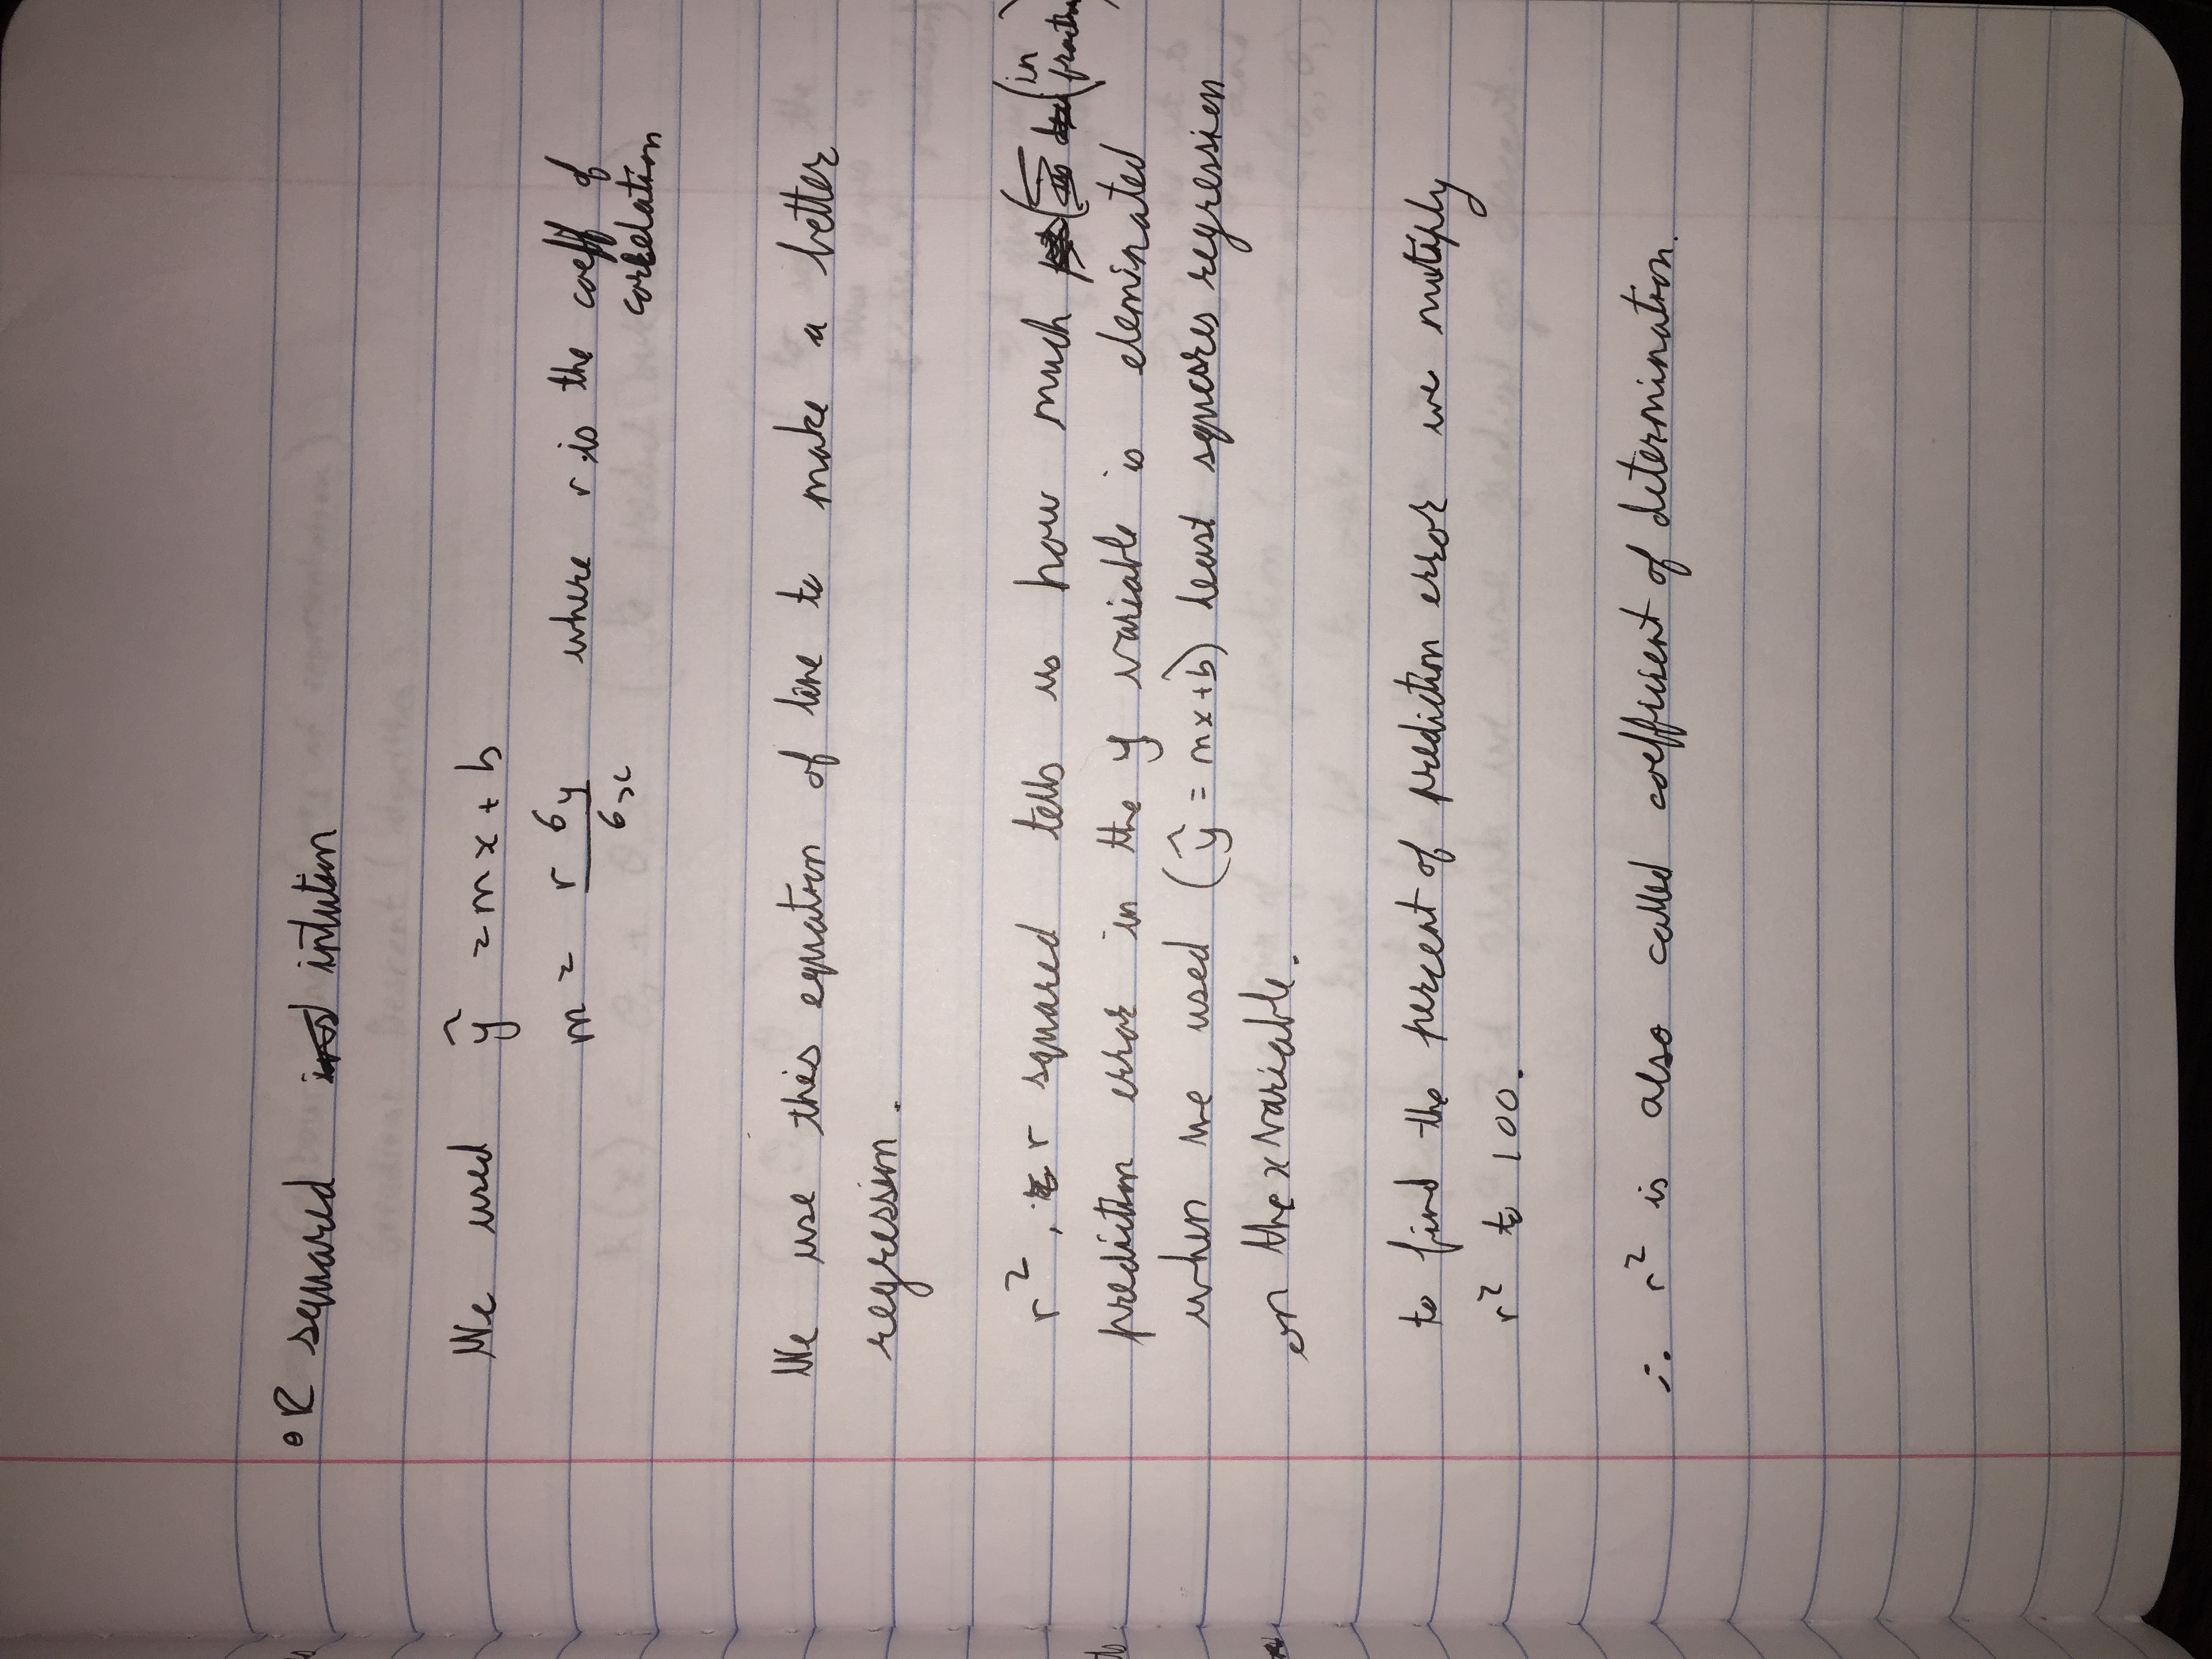 R squared intution
We used ŷ = mx + b
m = r σy / σx where r is the coeff of
correlation
We use this equation of line to make a better
regression.
r², r squared tells us how much (in
fraction)
prediction error in the y variable is eleminated
when we used (ŷ = mx+b) least squares regression
on the x variable.
to find the percent of prediction error we mutiply
r² to 100.
∴ r² is also called coefficient of determination.